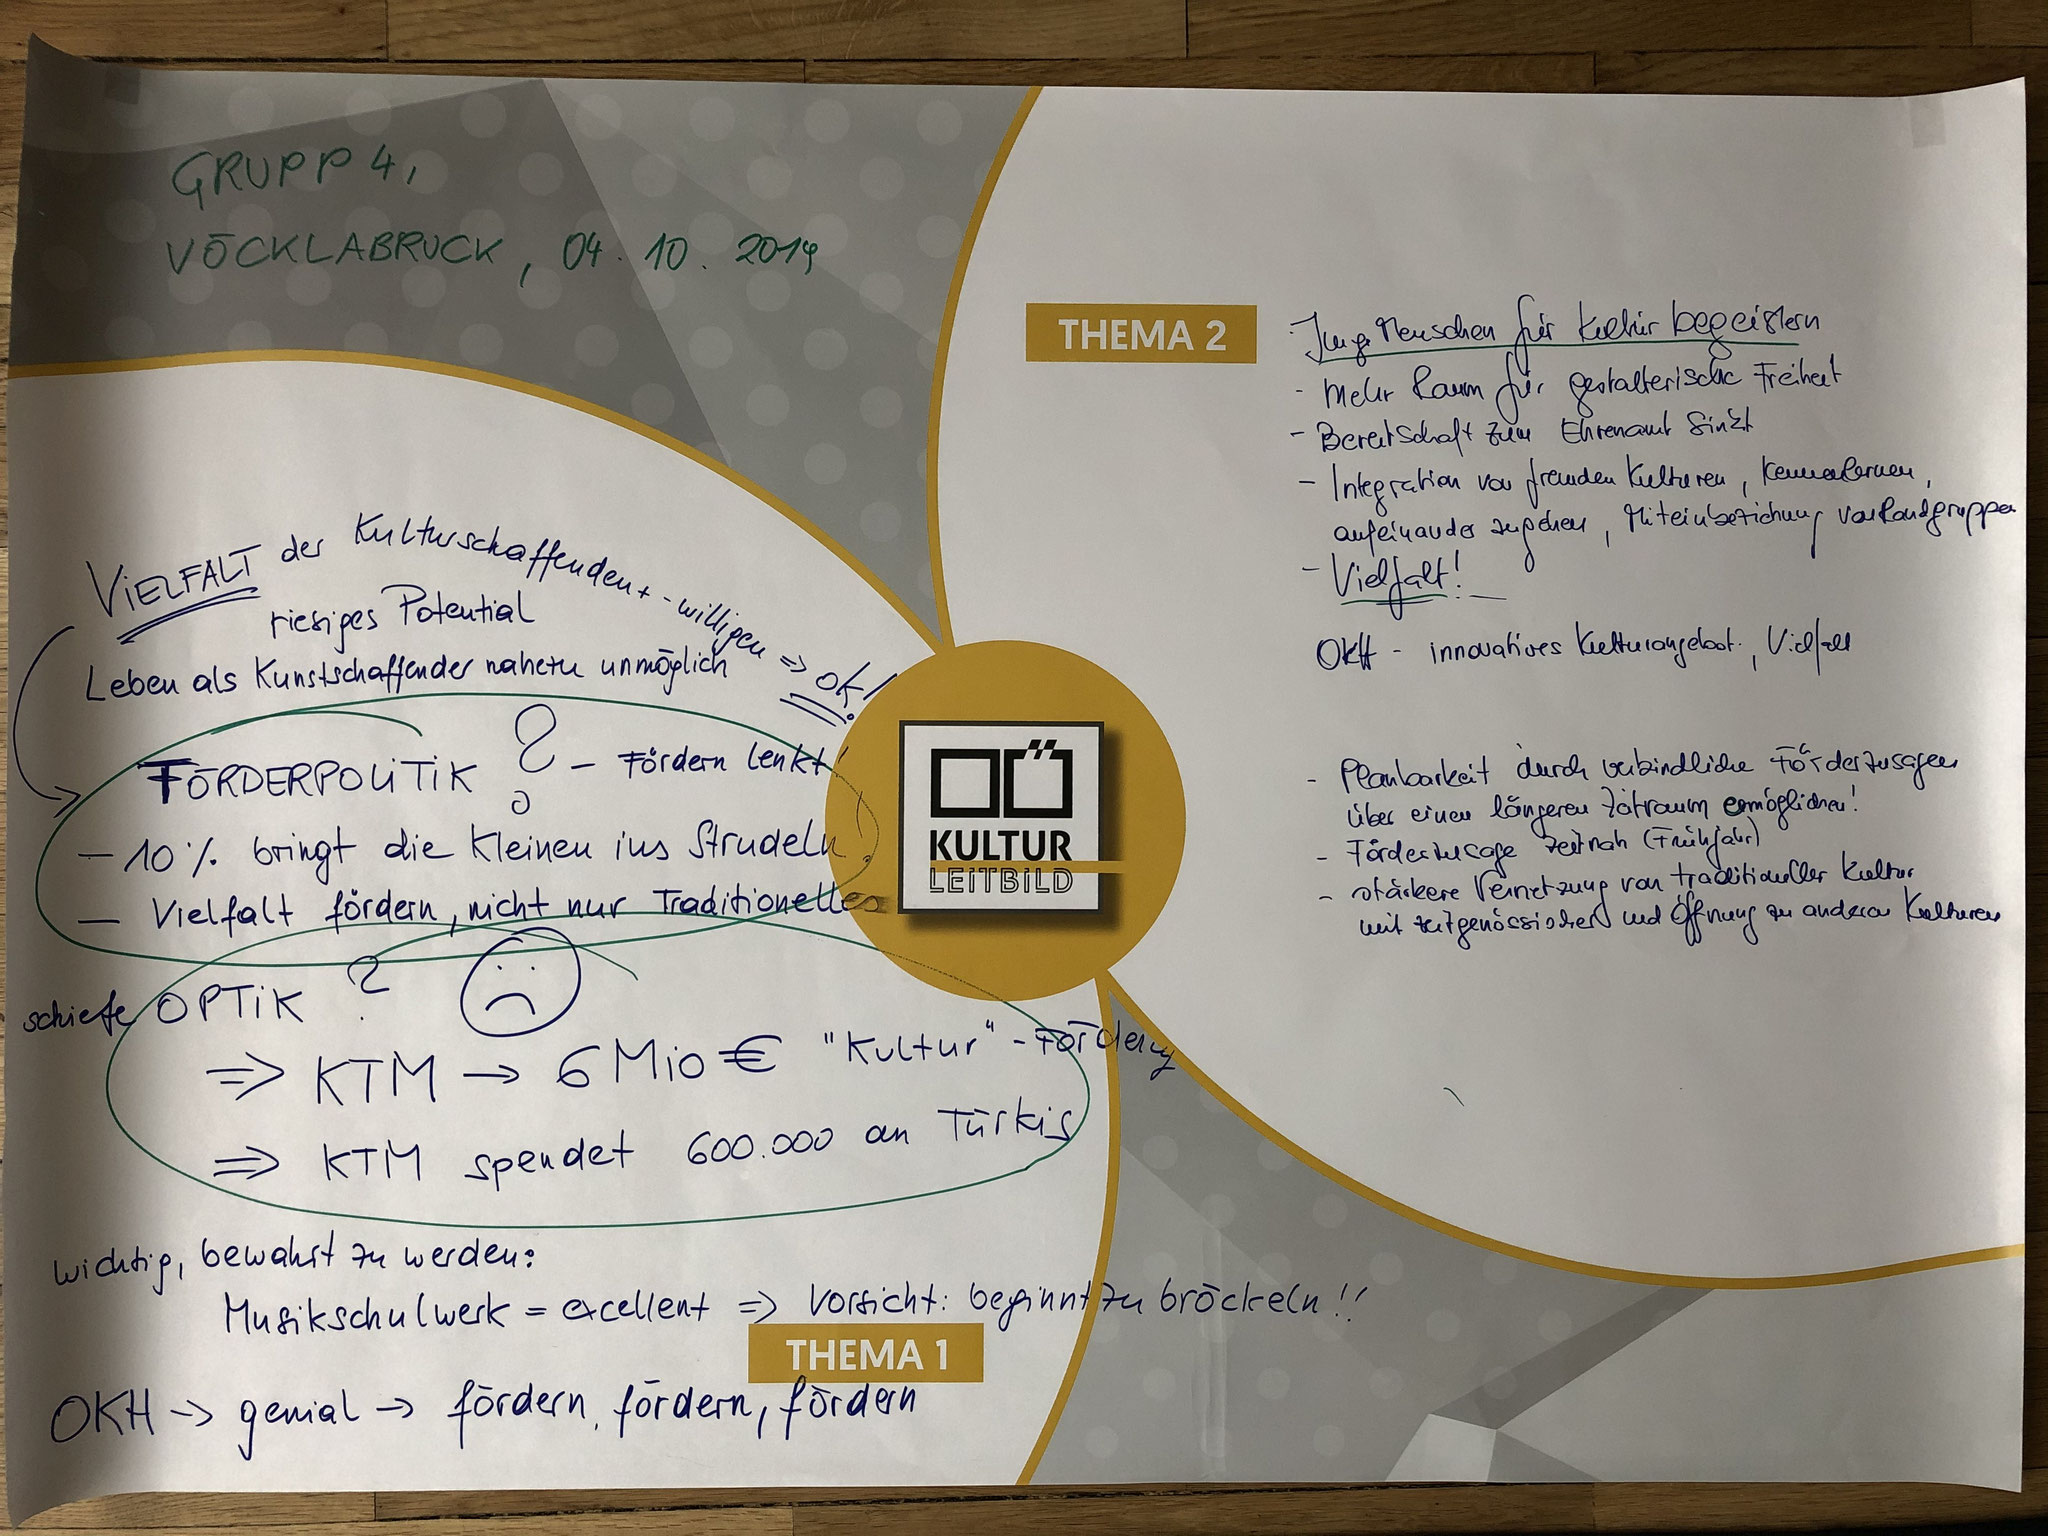 GRUPP 4,
VÖCKLABRUCK, 04.10.2019
VIELFALT der Kulturschaffenden + -willigen ⇒ ok!
riesiges Potential
Leben als Kunstschaffender nahezu unmöglich
FÖRDERPOLITIK ? – Fördern lenkt!
– 10% bringt die Kleinen ins Strudeln!
– Vielfalt fördern, nicht nur Traditionelles
schiefe OPTIK ?
⇒ KTM → 6 Mio € "Kultur"-Förderung
⇒ KTM spendet 600.000 an Türkis
wichtig, bewahrt zu werden:
Musikschulwerk = excellent ⇒ Vorsicht: beginnt zu bröckeln!!
THEMA 1
OKH → genial → fördern, fördern, fördern
OÖ
KULTUR
LEITBILD
THEMA 2
Junge Menschen für Kultur begeistern
- Mehr Raum für gestalterische Freiheit
- Bereitschaft zum Ehrenamt sinkt
- Integration von fremden Kulturen, Kennenlernen,
aufeinander zugehen, Miteinbeziehung von Randgruppen
- Vielfalt!
OKH - innovatives Kulturangebot, Vielfalt
- Planbarkeit durch verbindliche Förderzusagen
über einen längeren Zeitraum ermöglichen!
- Förderzusage zeitnah (Frühjahr)
- stärkere Vernetzung von traditioneller Kultur
mit zeitgenössischer und Öffnung zu anderen Kulturen